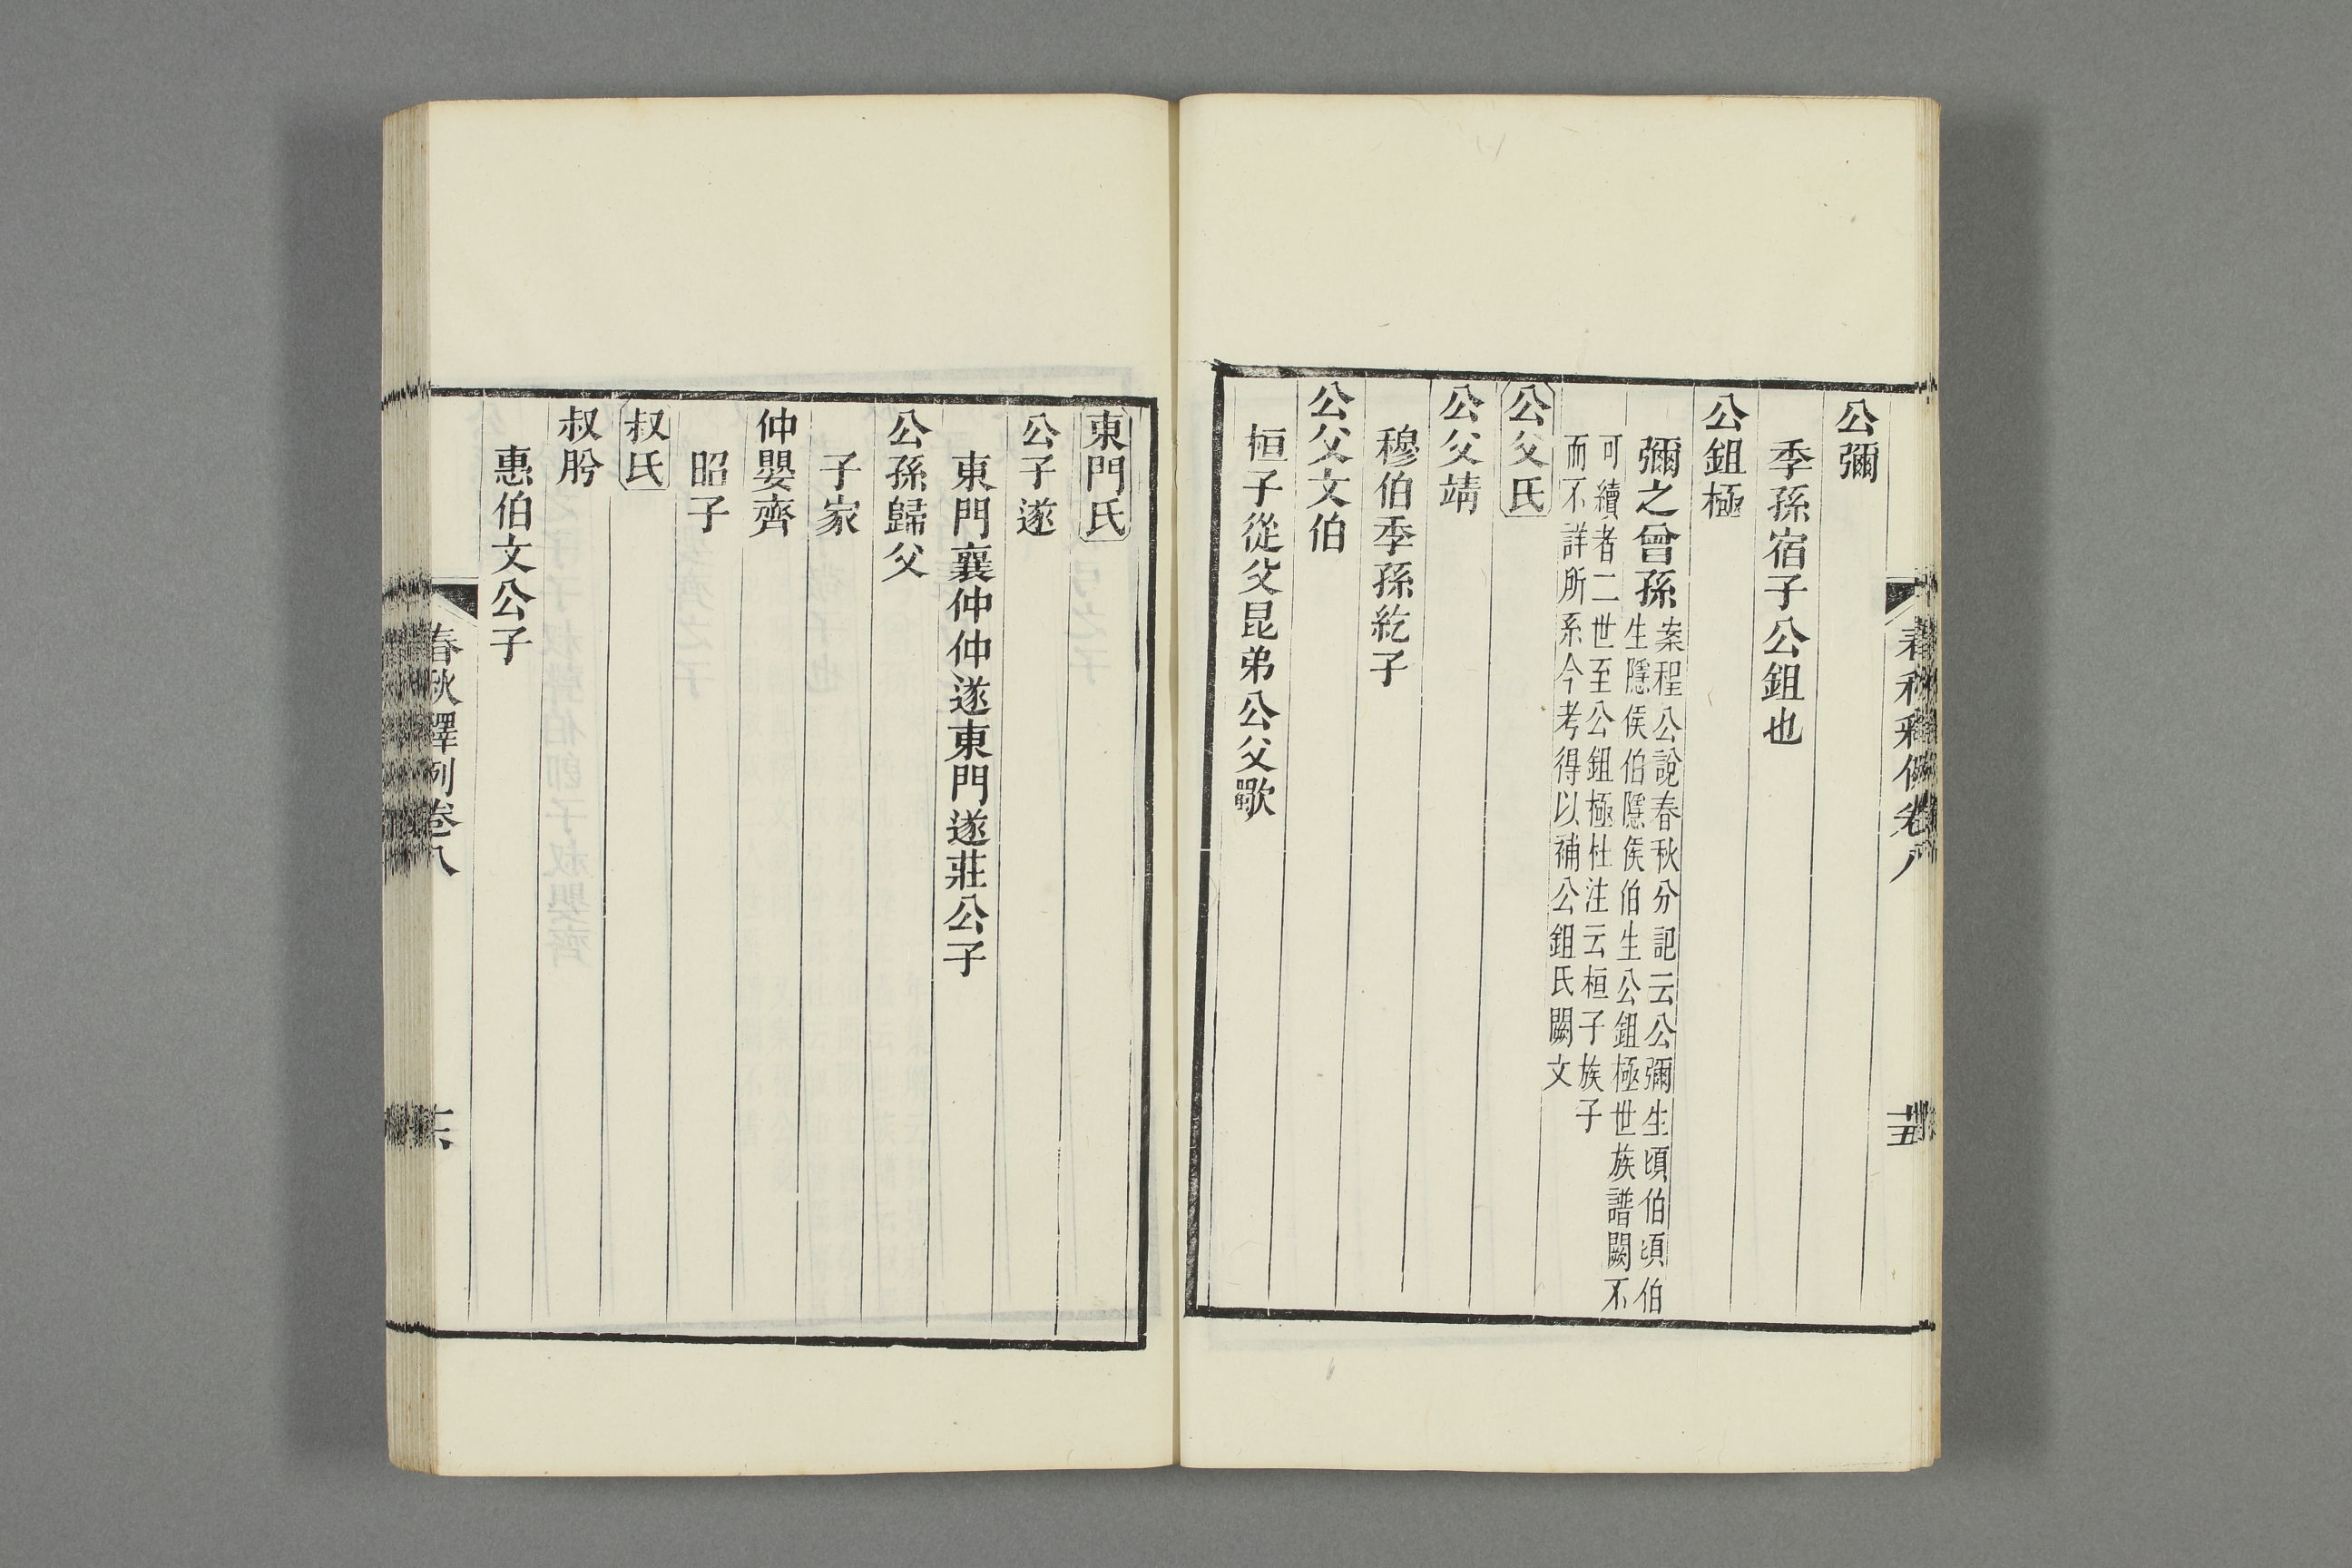 公彌
季孫宿子公鉏也
公鉏極
彌之曾孫案程公說春秋分記云公彌生頃伯頃伯
生隱侯伯隱侯伯生公鉏極世族譜闕不
可續者二世至公鉏極杜注云桓子族子
而不詳所系今考得以補公鉏氏闕文
公父氏
公父靖
穆伯季孫紇子
公父文伯
桓子從父昆弟公父歜
春秋釋例卷八
十五
東門氏
公子遂
東門襄仲仲遂東門遂莊公子
公孫歸父
子家
仲嬰齊
昭子
叔氏
叔肹
惠伯文公子
春秋釋例卷八